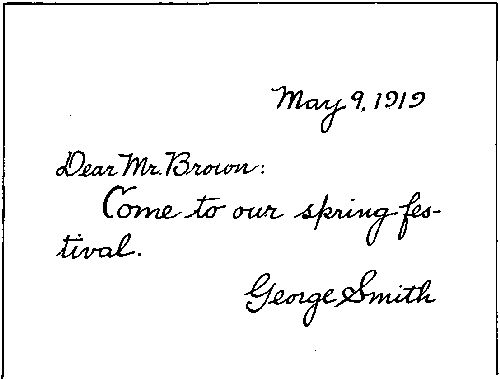 May 9, 1919
Dear Mr. Brown:
Come to our spring fes-
tival.
George Smith